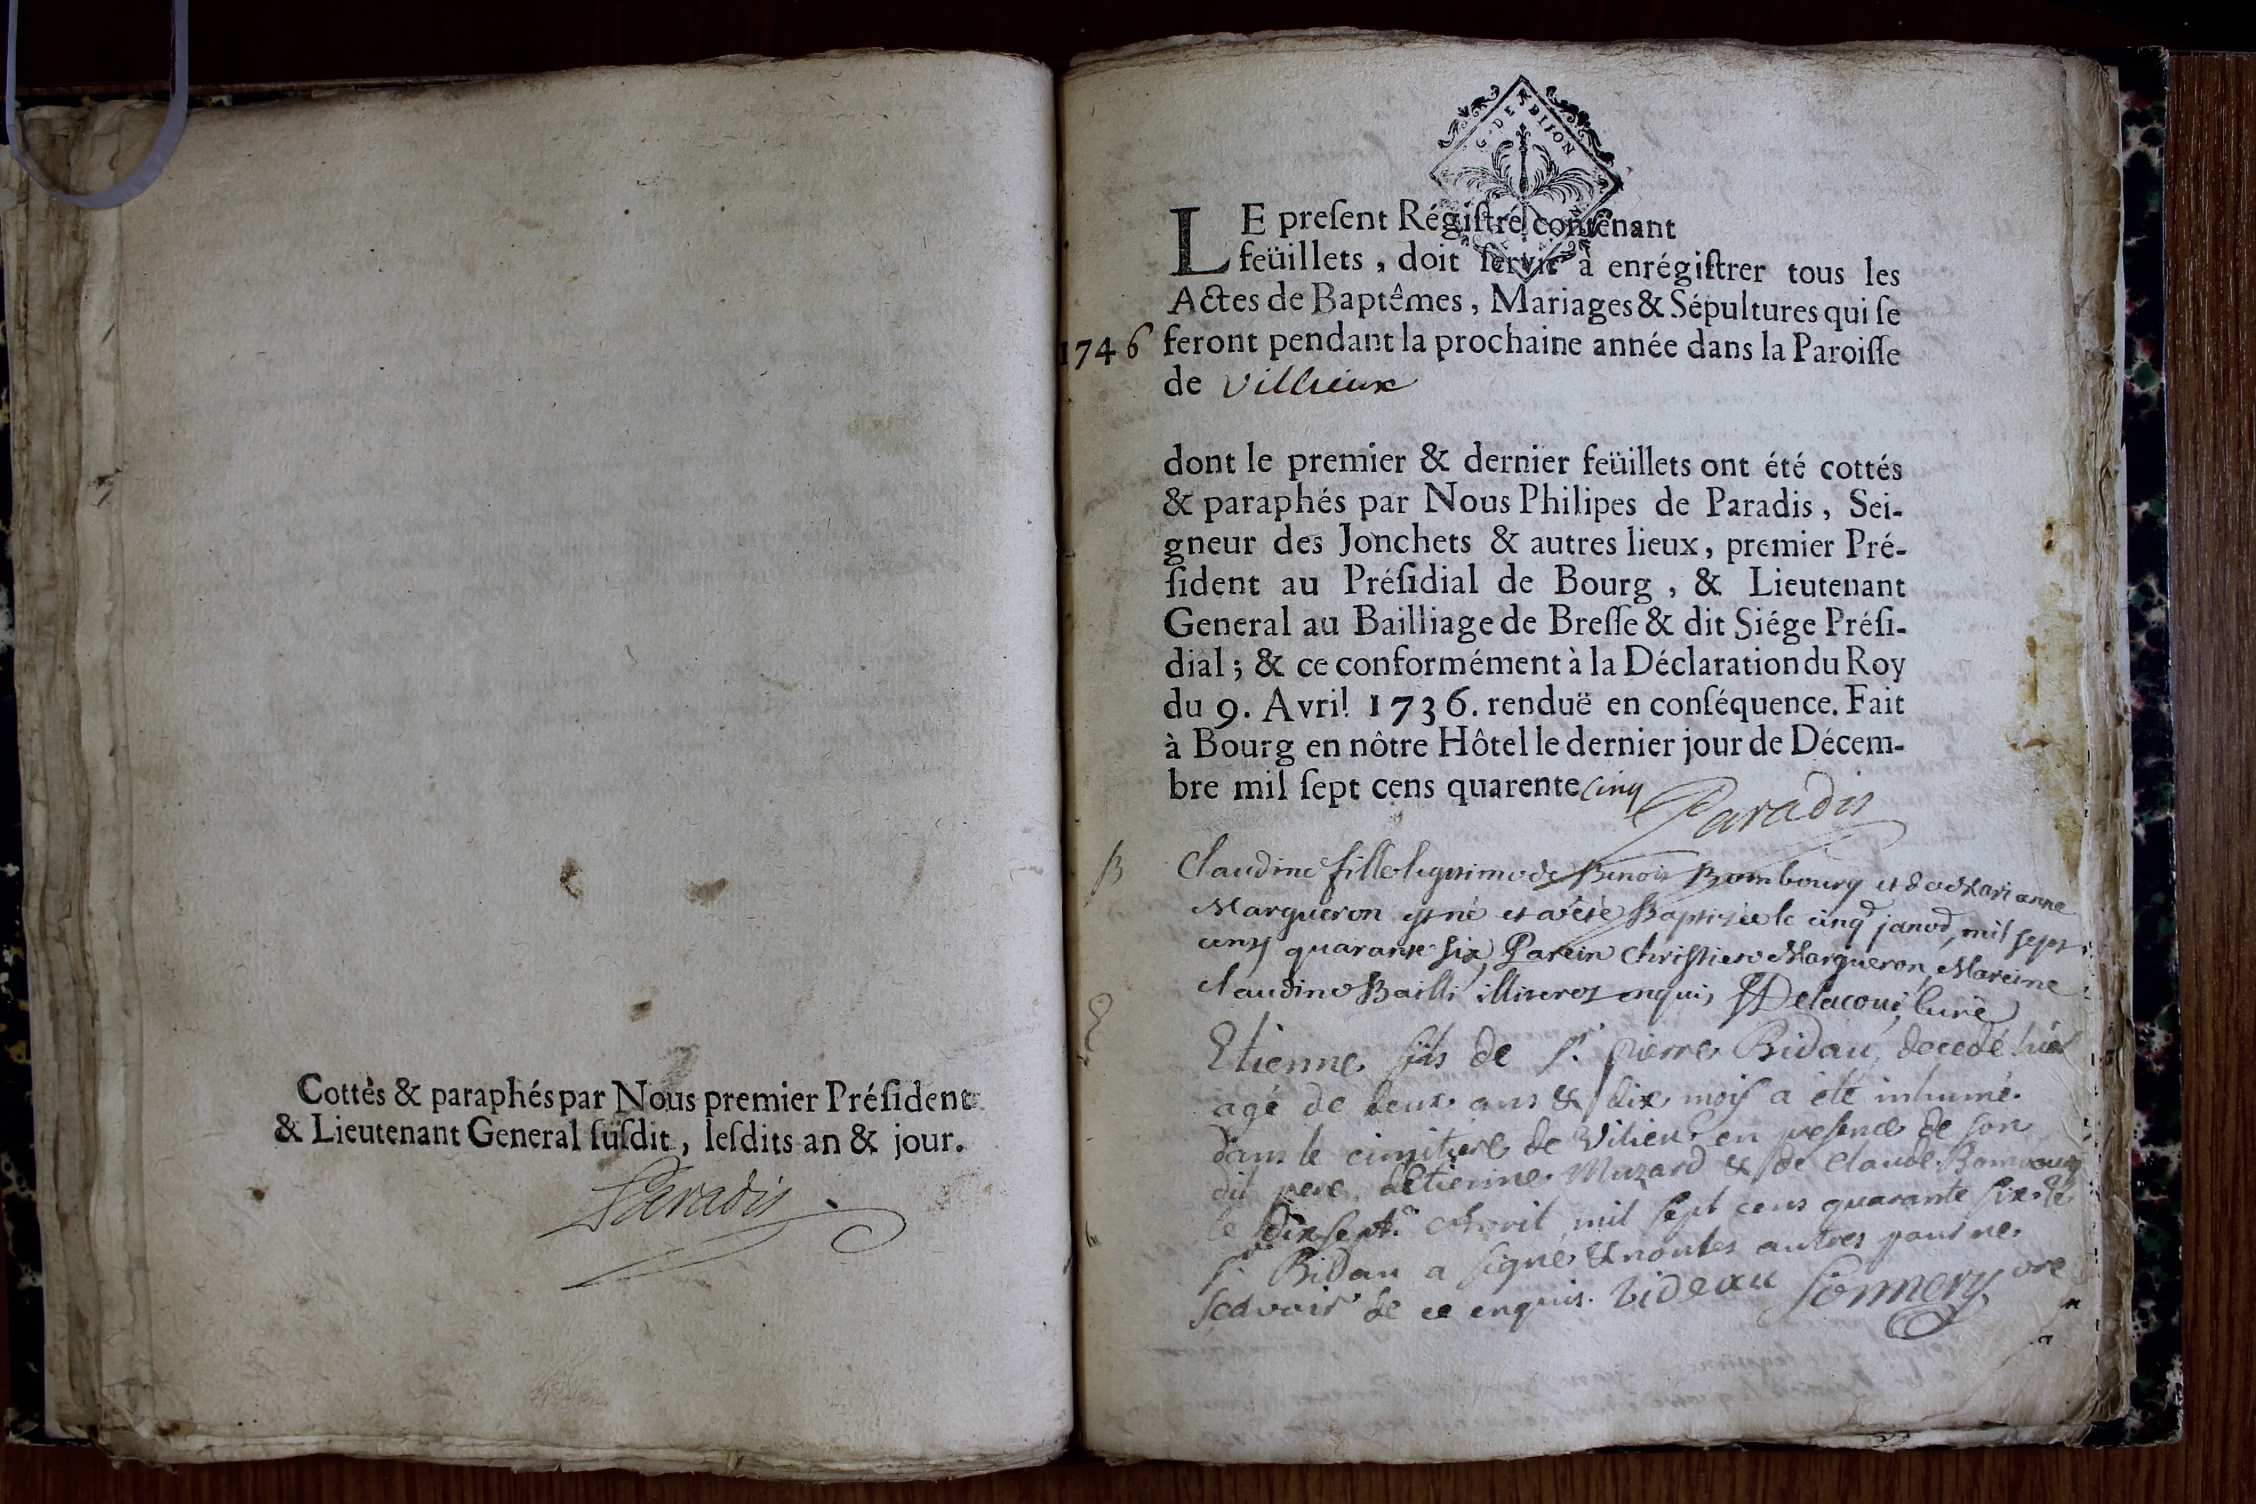 Cottés & paraphés par Nous premier Préſident
& Lieutenant General ſuſdit, leſdits an & jour.
Paradis
G. DE DIJON
LE preſent Régiſtre contenant
feüillets, doit ſervir à enrégiſtrer tous les
Actes de Baptêmes, Mariages & Sépultures qui ſe
1746 feront pendant la prochaine année dans la Paroiſſe
de Villieux
dont le premier & dernier feüillets ont été cottés
& paraphés par Nous Philipes de Paradis, Sei-
gneur des Jonchets & autres lieux, premier Pré-
ſident au Préſidial de Bourg, & Lieutenant
General au Bailliage de Breſſe & dit Siége Préſi-
dial; & ce conformément à la Déclaration du Roy
du 9. Avril 1736. renduë en conſéquence. Fait
à Bourg en nôtre Hôtel le dernier jour de Décem-
bre mil ſept cens quarente cinq
Paradis
B Claudine fille legitime de Benoit Bombourg et de Marianne
Margueron est né et a été Baptisée le cinq janv, mil sept
cens quarante six, Parein Christien Margueron, Mareine
Claudine Bailli illiteres enquis, Delacoui, Curé
Etienne fils de Sr. pierre Bidau, decedé hier
agé de deux ans & dix mois a été inhumé
dans le cimitiere de Vilieu en presence de son
dit pere, d'etienne Muzard & de Claude Bombourg
le dixsept. Avril mil sept cens quarante six. le
Sr. Bidau a signé & non les autres pour ne
scavoir de ce enquis. bideau Sonnery vre